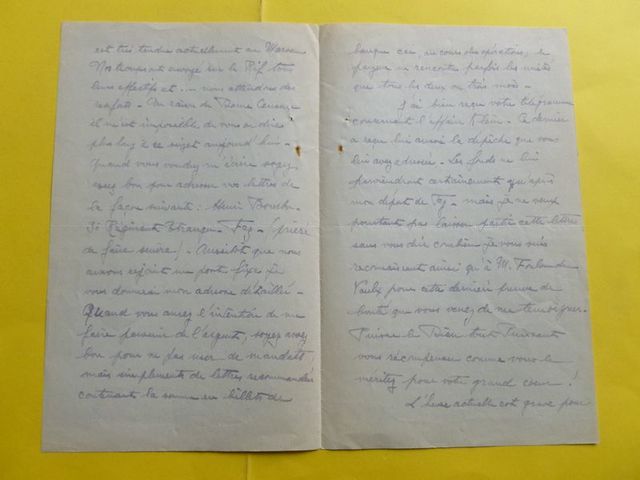 est très tendue actuellement au Maroc.
Nos troupes ont engagé sur le Rif tous
leurs effectifs et ... nous attendons des
. En raison de
il m'est impossible de vous en dire
plus long à ce sujet aujourd'hui -
Quand vous voudrez m'écrire soyez
assez bon pour adresser vos lettres de
la façon suivante : Henri
3e Régiment Étranger - Fez - (prière
de faire suivre). Aussitôt que nous
aurons rejoint un poste fixe je
vous donnerai mon adresse détaillée -
Quand vous aurez l'intention de me
faire parvenir de l'argent, soyez assez
bon pour ne pas user de mandats,
mais simplement de lettres recommandées
contenant la somme en billets de
banque car, au cours des opérations, le
payeur ne rencontre parfois les unités
que tous les deux ou trois mois -
J'ai bien reçu votre télégramme
concernant l'affaire Klein. Ce dernier
a reçu lui aussi la dépêche que vous
lui avez adressée. Les fonds ne lui
parviendront certainement qu'après
mon départ de Fez - mais je ne veux
pourtant pas laisser partir cette lettre
sans vous dire combien je vous suis
reconnaissant ainsi qu'à M. de
pour cette dernière preuve de
bonté que vous venez de me témoigner.
Puisse le Dieu tout Puissant
vous récompenser comme vous le
méritez pour votre grand cœur !
L'heure actuelle est grave pour